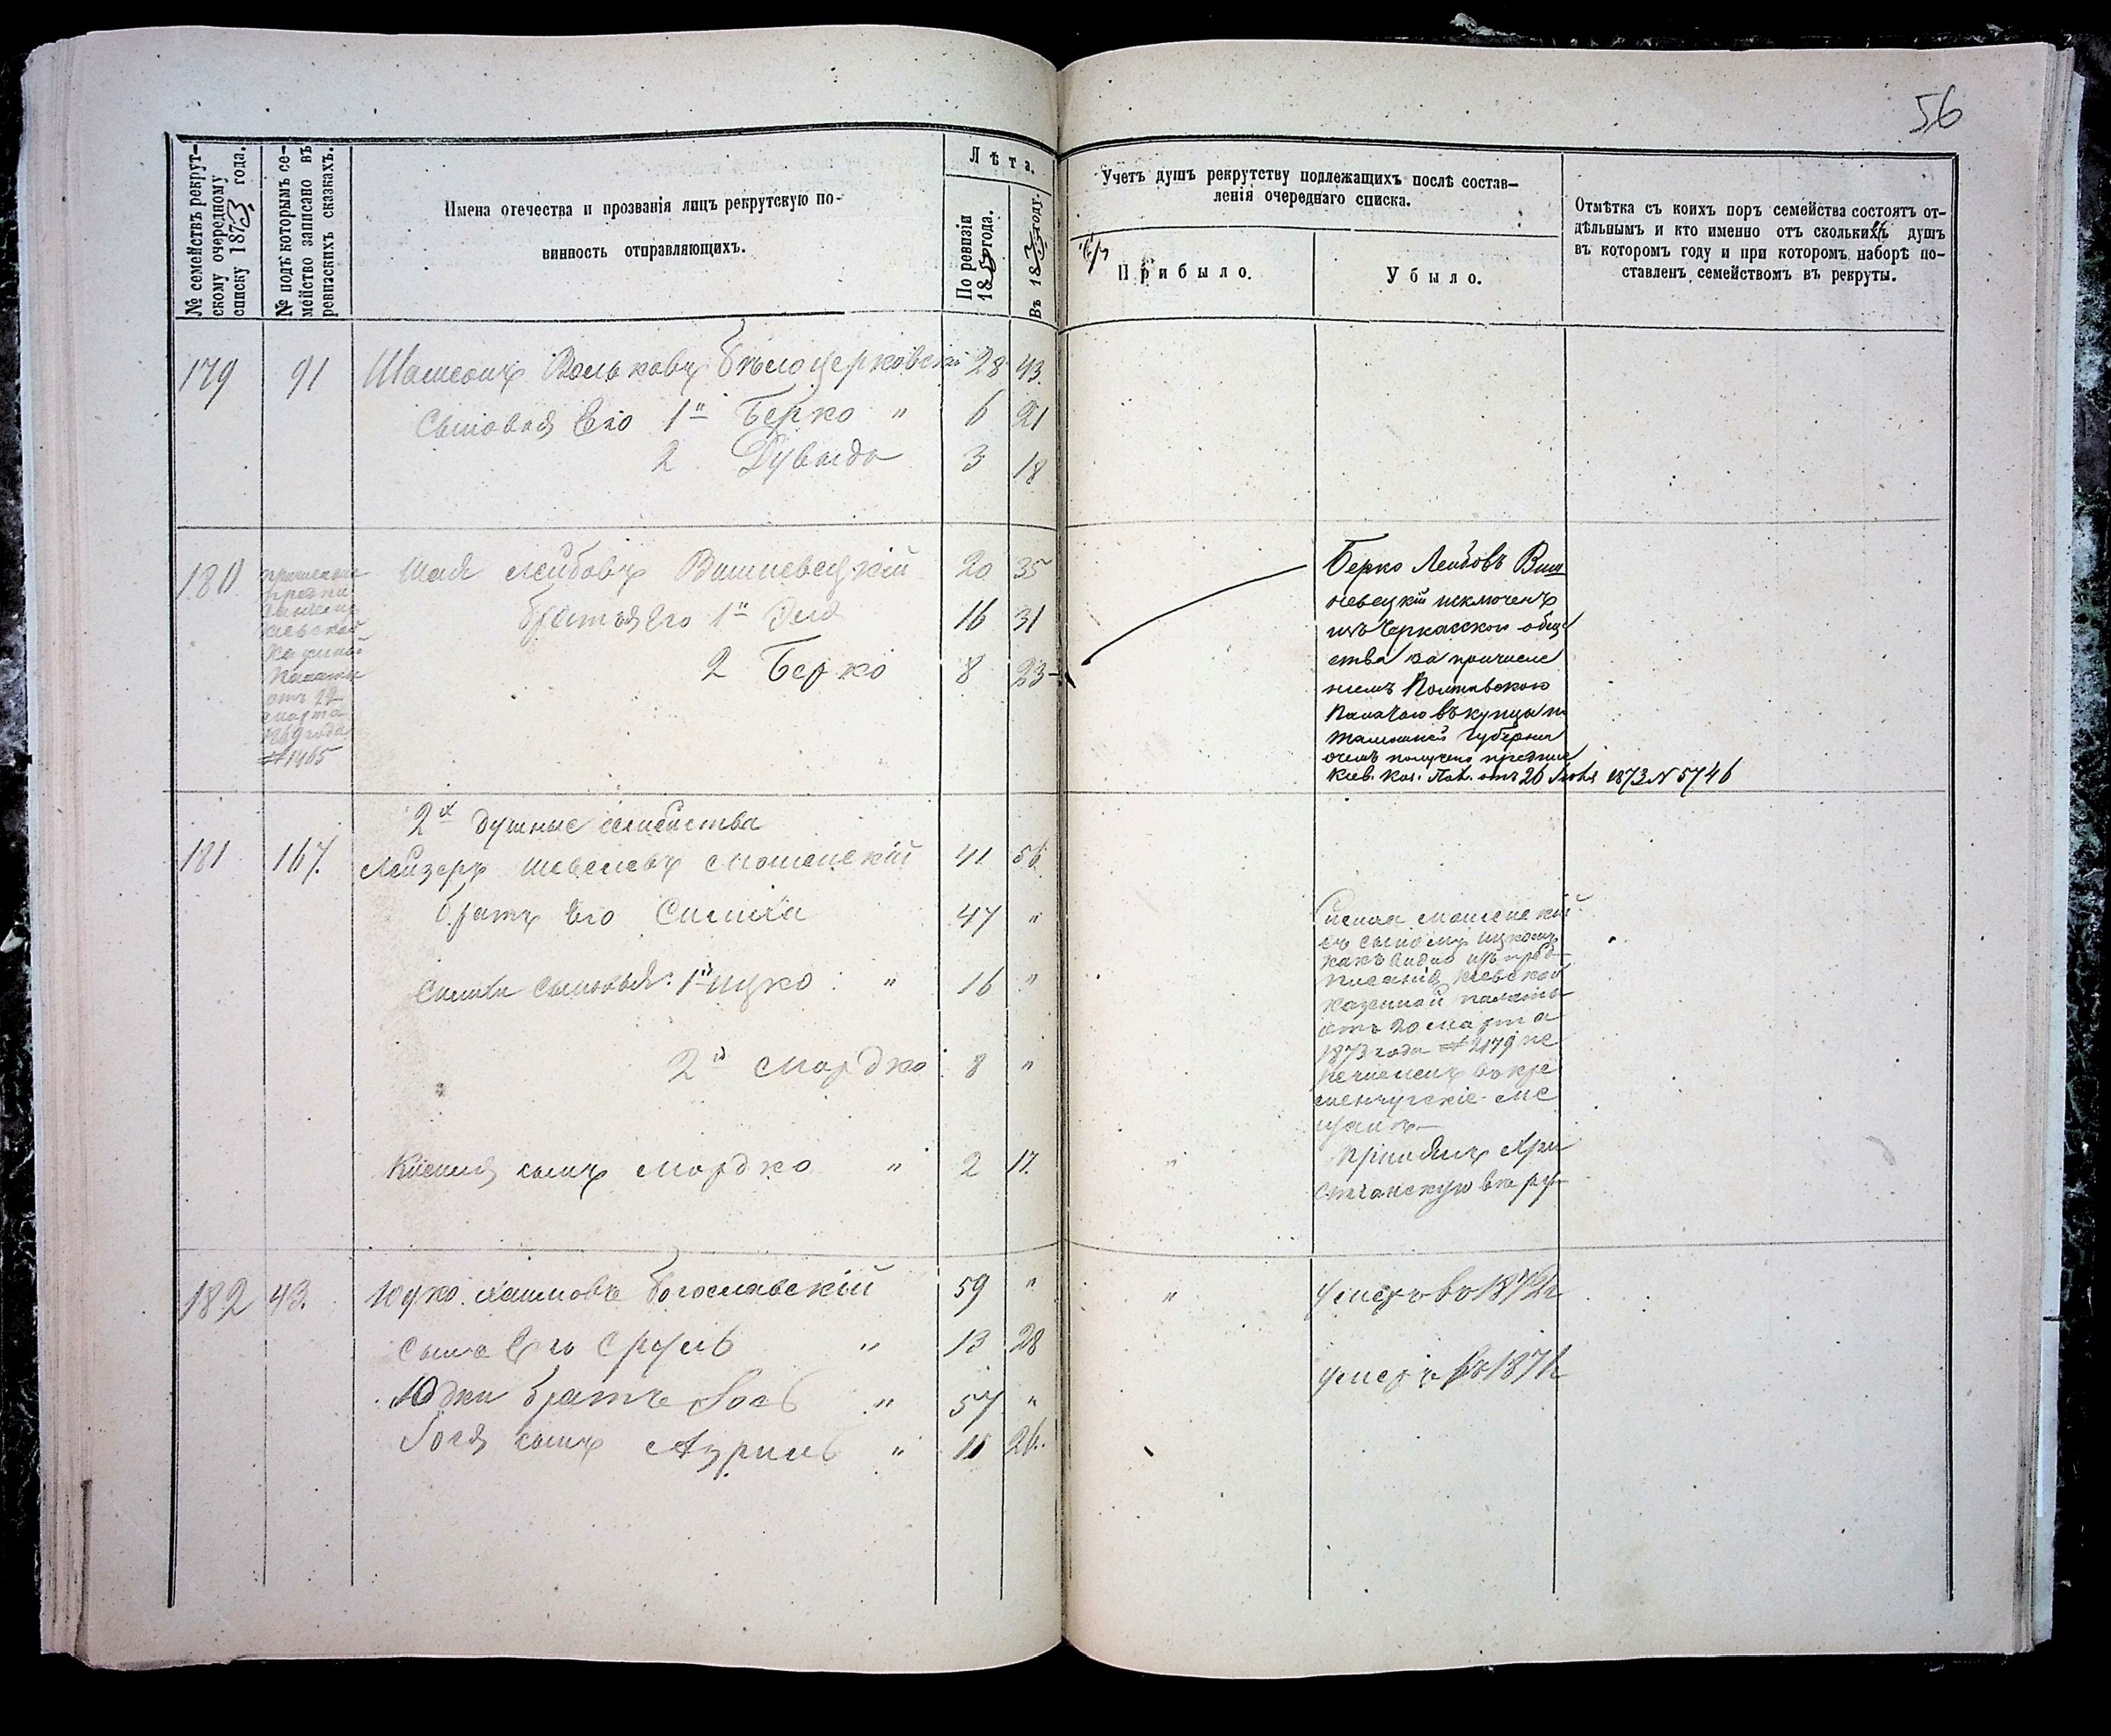 56
№ семействъ рекрут-
скому очередному
списку 1873 года.
№ подъ которымъ се-
мейство записано въ
ревизскихъ сказкахъ.
Имена отечества и прозванія лицъ рекрутскую по-
винность отправляющихъ.
Лѣта.
По ревизіи
18 года.
Въ 1873 году.
Учетъ душъ рекрутству подлежащихъ послѣ состав-
ленія очереднаго списка.
Прибыло.
Убыло.
Отмѣтка съ коихъ поръ семейства состоятъ от-
дѣльнымъ и кто именно отъ сколькихъ душъ
въ которомъ году и при которомъ наборѣ по-
ставленъ семействомъ въ рекруты.
179 91 Шамсонъ Вольковъ Бѣлоцерковскій 28 43.
Сыновья Его 1й Берко " 6 21
2 Дувидъ 3 18
180 Шая Лейбовъ Вишневецкій 20 35
братья Его 1й 16 31
2 Берко 8 23
Казенной
Палаты
отъ 22
марта
1869 года
№ 1465
Берко Лейбовъ Виш
невецкій исключенъ
изъ Черкасского обще
ства за причисле
ніемъ Полтавскою
Палатою въ купцы
губерніи
о чемъ получено
Кіев. Каз. Пал. отъ 26 1873 № 5746
2х душные семейства
181 167. Лейзеръ Шевелевъ Мошенскій 41 56
братъ Его Симха 47 "
Симхи сыновья: 1й Ицко " 16 "
2й Мордко 8 "
сынъ Мордко " 2 17.
Симха Мошенскій
съ сыномъ Ицкомъ
какъ видно изъ пред-
писанія Кіевской
Казенной палаты
отъ 20 марта
1873 года № 2179 пе
речисленъ въ Кре
менчугскіе ме
щане
принялъ Хри
стіанскую вѣру
182 43. Юдко Хаимовъ Богославскій 59 " " умеръ въ 1872 г
сынъ Его Сруль " 13 28
Юдки братъ Іось " 57 " умеръ въ 1871 г
Іося сынъ Азриль " 11 26.